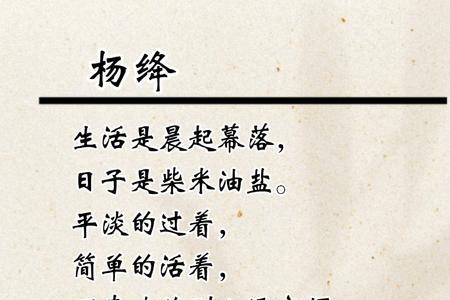 杨绛
生活是晨起幕落，
日子是柴米油盐。
平淡的过着，
简单的活着，